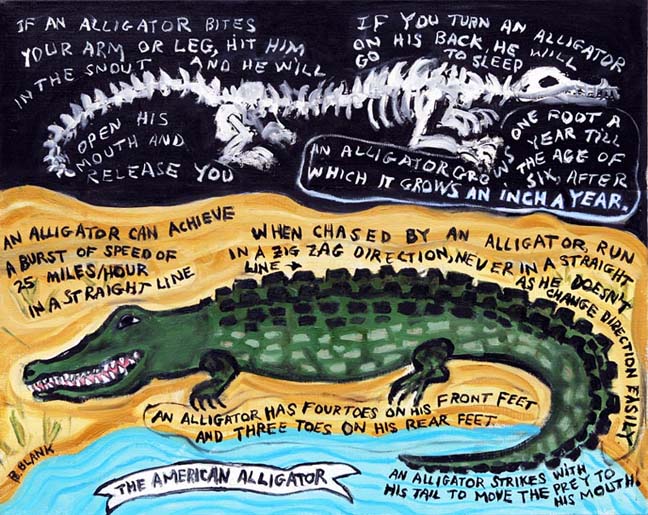 IF AN ALLIGATOR BITES
YOUR ARM OR LEG, HIT HIM
IN THE SNOUT AND HE WILL
OPEN HIS
MOUTH AND
RELEASE YOU
IF YOU TURN AN ALLIGATOR
ON HIS BACK, HE WILL
GO TO SLEEP
AN ALLIGATOR GROWS ONE FOOT A
YEAR TILL
THE AGE OF
SIX, AFTER
WHICH IT GROWS AN INCH A YEAR.
AN ALLIGATOR CAN ACHIEVE
A BURST OF SPEED OF
25 MILES/HOUR
IN A STRAIGHT LINE
WHEN CHASED BY AN ALLIGATOR, RUN
IN A ZIG ZAG DIRECTION, NEVER IN A STRAIGHT
LINE → AS HE DOESN'T
CHANGE DIRECTION EASILY
AN ALLIGATOR HAS FOUR TOES ON HIS FRONT FEET
AND THREE TOES ON HIS REAR FEET.
B. BLANK
THE AMERICAN ALLIGATOR
AN ALLIGATOR STRIKES WITH
HIS TAIL TO MOVE THE PREY TO
HIS MOUTH.